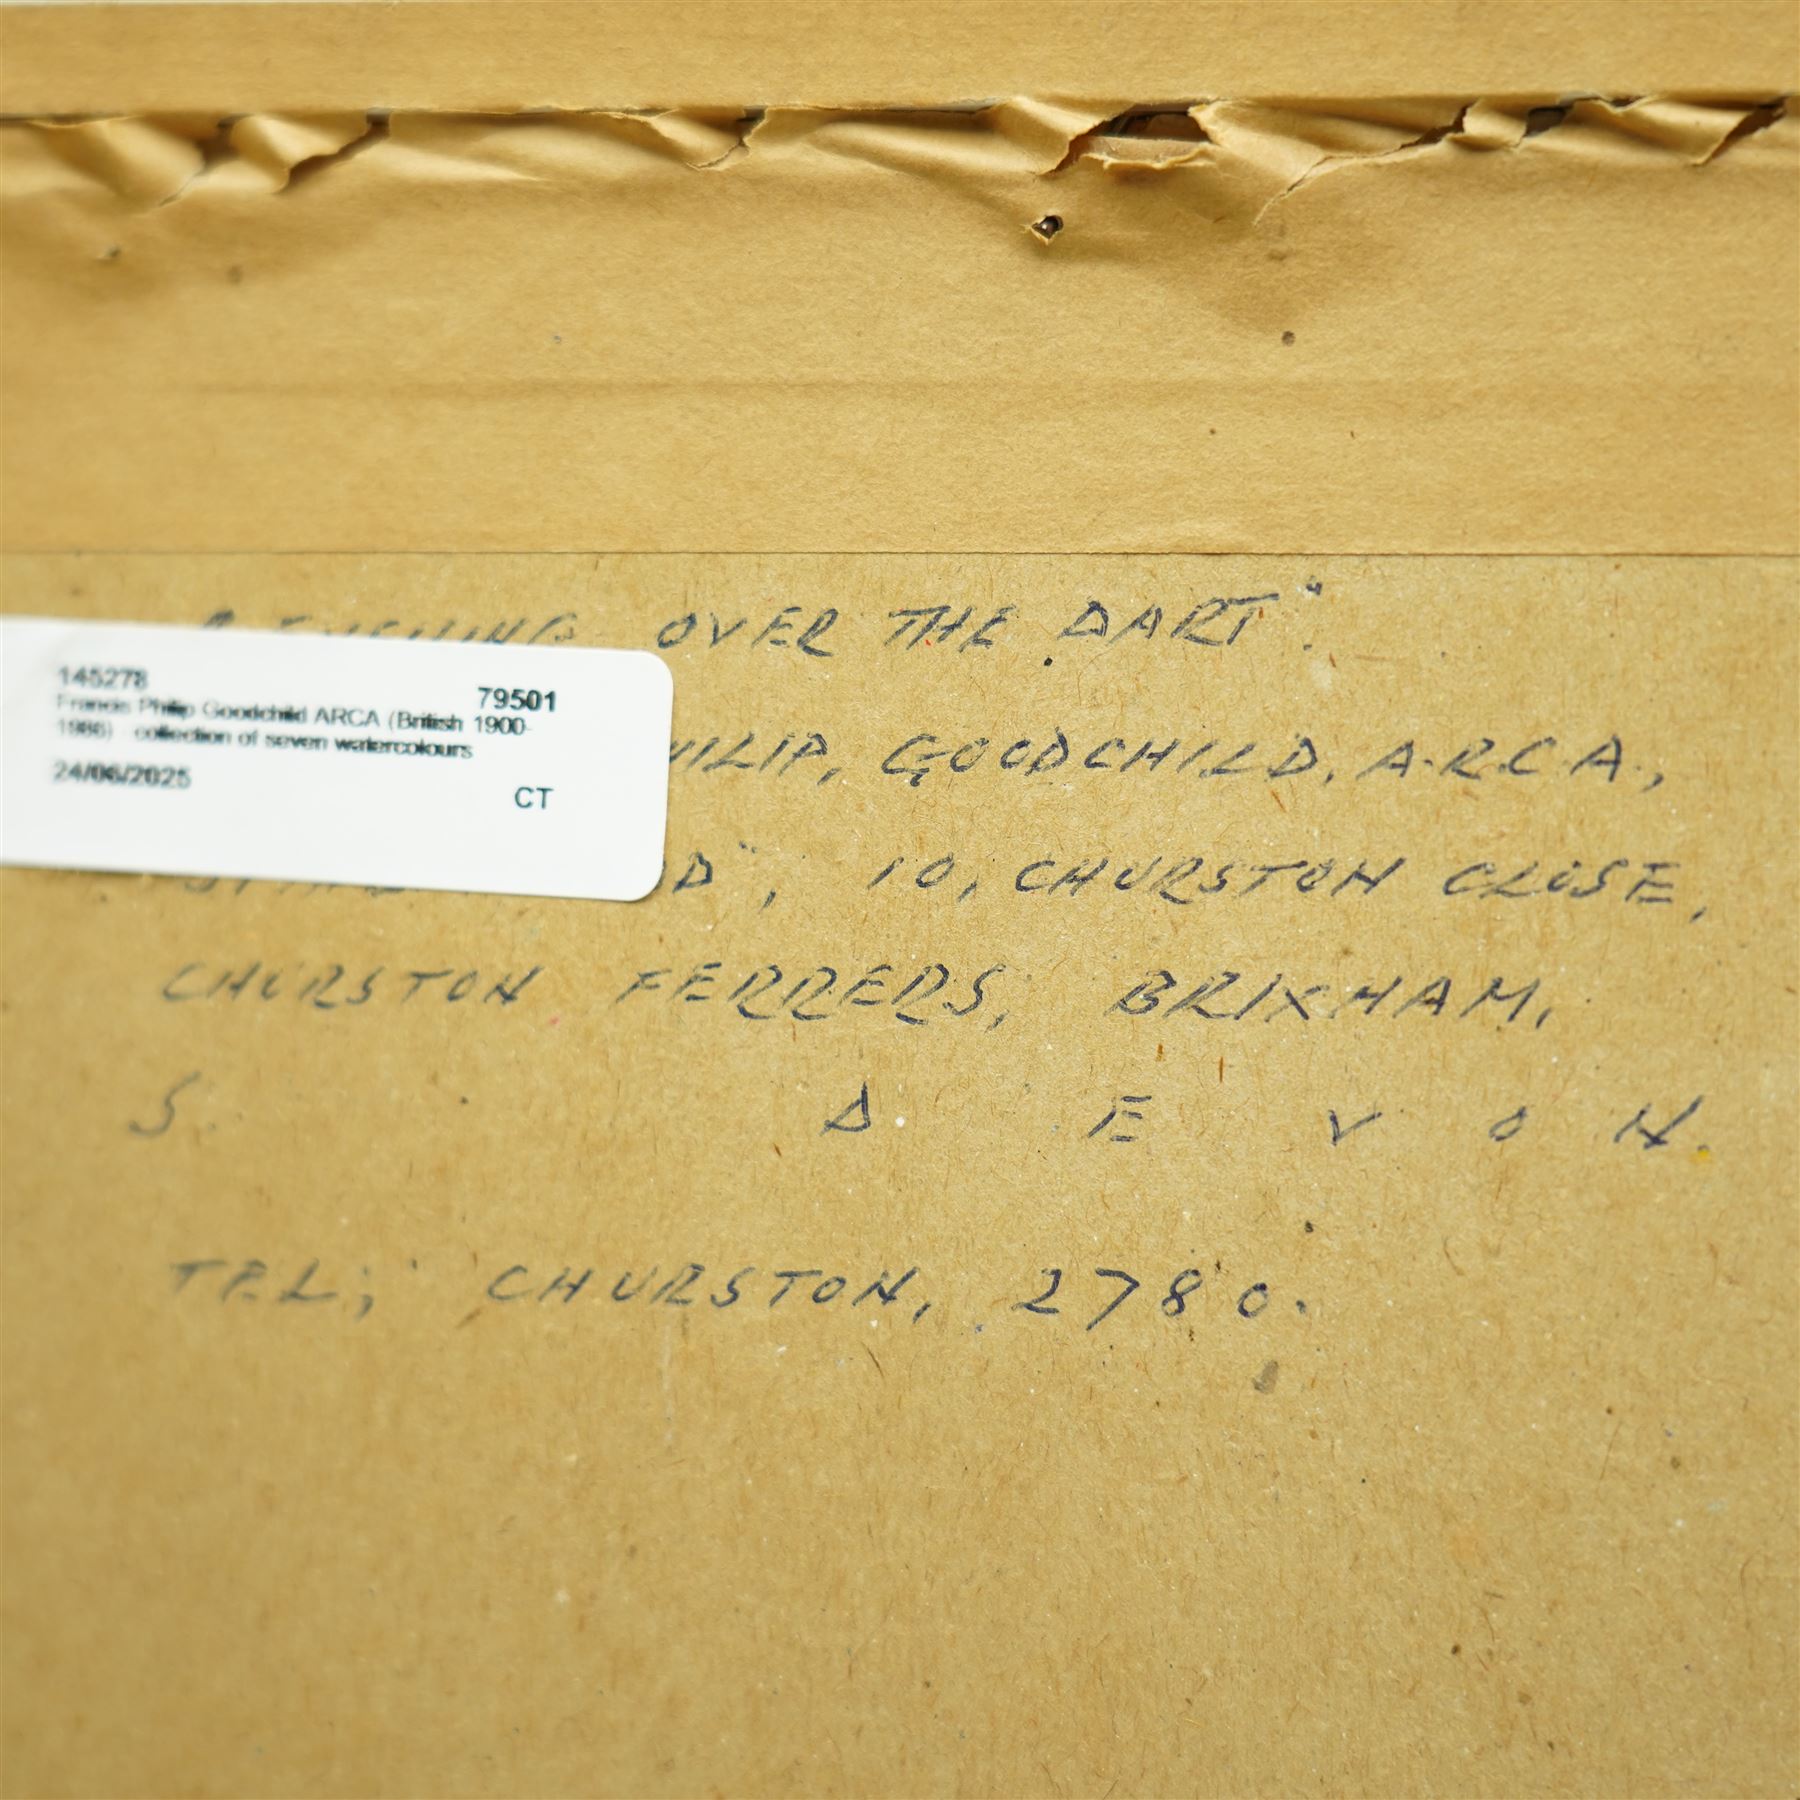 OVER THE DART".
145278
79501
Francis Philip Goodchild ARCA (British 1900-
1986) collection of seven watercolours
24/06/2025
CT
GOODCHILD, A.R.C.A.,
10, CHURSTON CLOSE,
CHURSTON FERRERS, BRIXHAM,
S. D E V O N.
TEL; CHURSTON, 2780.